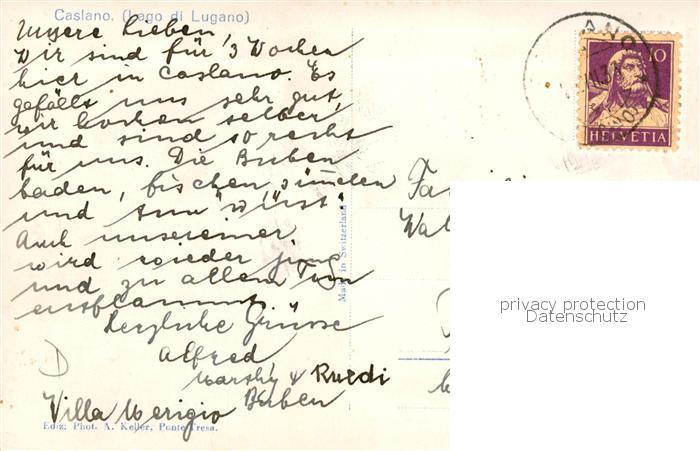 Caslano. (Lago di Lugano)
Unsere Lieben,
Wir sind für 3 Wochen
hier in Caslano. Es
gefällt uns sehr gut,
wir kochen selber
und sind so recht
für uns. Die Buben
baden, fischen,
und tun "wüst".
Auch unsereiner
wird wieder jung
und zu allem Tun
entflammt.
Herzliche Grüsse
Alfred,
& Ruedi
Buben
Villa Merigio
D
Ediz: Phot. A. Keller, Ponte-Tresa.
Made in Switzerland
10
HELVETIA
Fa
privacy protection
Datenschutz